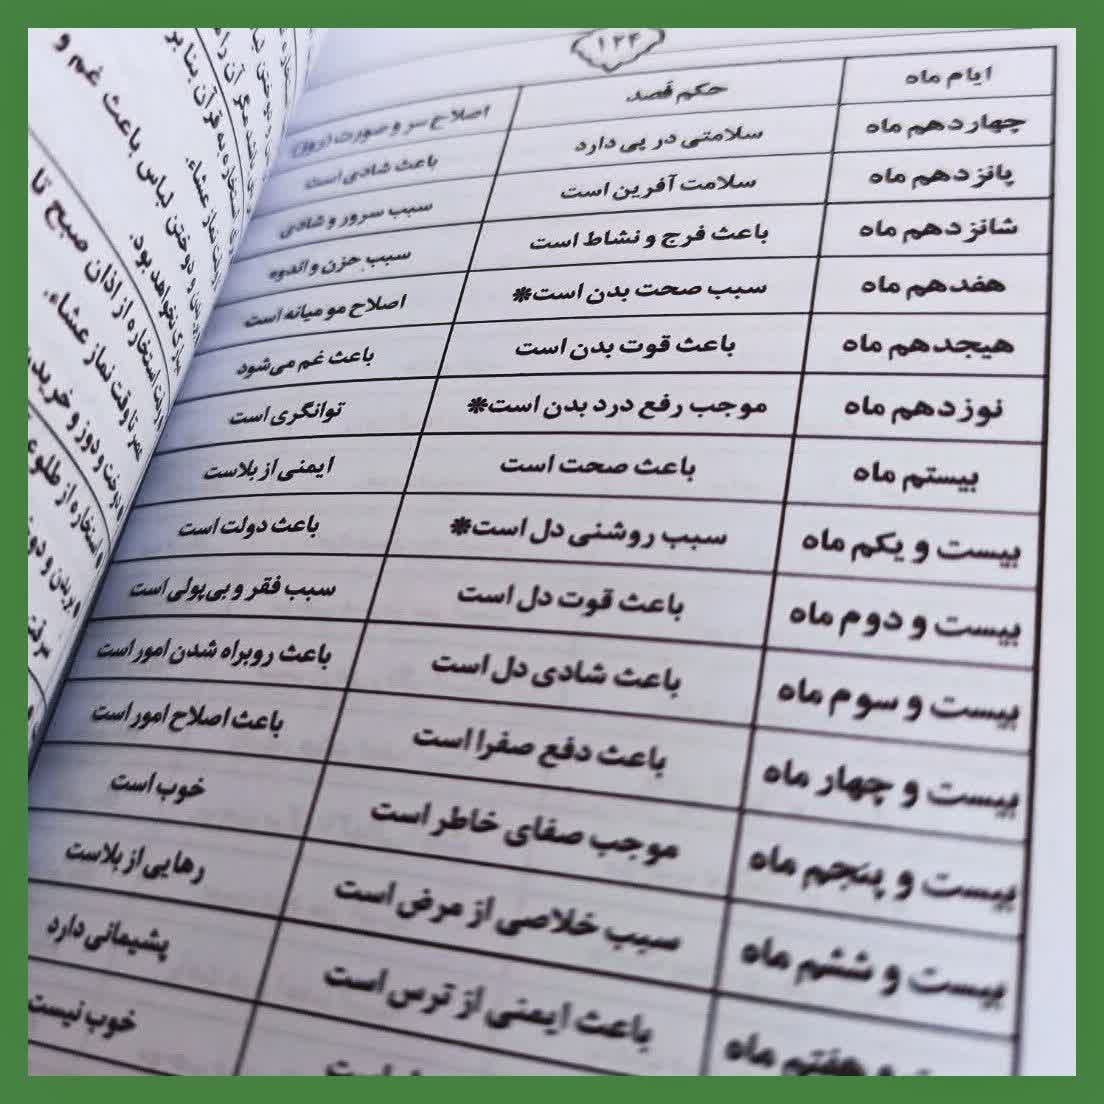 ۱۲۴
ایام ماه حکم فصد اصلاح سر و صورت (روز)
چهاردهم ماه سلامتی در پی دارد باعث شادی است
پانزدهم ماه سلامت آفرین است سبب سرور و شادی
شانزدهم ماه باعث فرج و نشاط است سبب حزن و اندوه
هفدهم ماه سبب صحت بدن است* اصلاح مو میانه است
هیجدهم ماه باعث قوت بدن است باعث غم می‌شود
نوزدهم ماه موجب رفع درد بدن است* توانگری است
بیستم ماه باعث صحت است ایمنی از بلاست
بیست و یکم ماه سبب روشنی دل است* باعث دولت است
بیست و دوم ماه باعث قوت دل است سبب فقر و بی‌پولی است
بیست و سوم ماه باعث شادی دل است باعث روبراه شدن امور است
بیست و چهار ماه باعث دفع صفرا است باعث اصلاح امور است
بیست و پنجم ماه موجب صفای خاطر است خوب است
بیست و ششم ماه سبب خلاصی از مرض است رهایی از بلاست
و هفتم ماه باعث ایمنی از ترس است پشیمانی دارد
است خوب نیست
قرآن بنا بر
نماز عشاء.
و دوختن لباس باعث غم و
نخواهد بود.
استخاره از اذان صبح تا
تا وقت نماز عشاء.
دوخت و دوز و خرید
استخاره از طلوع